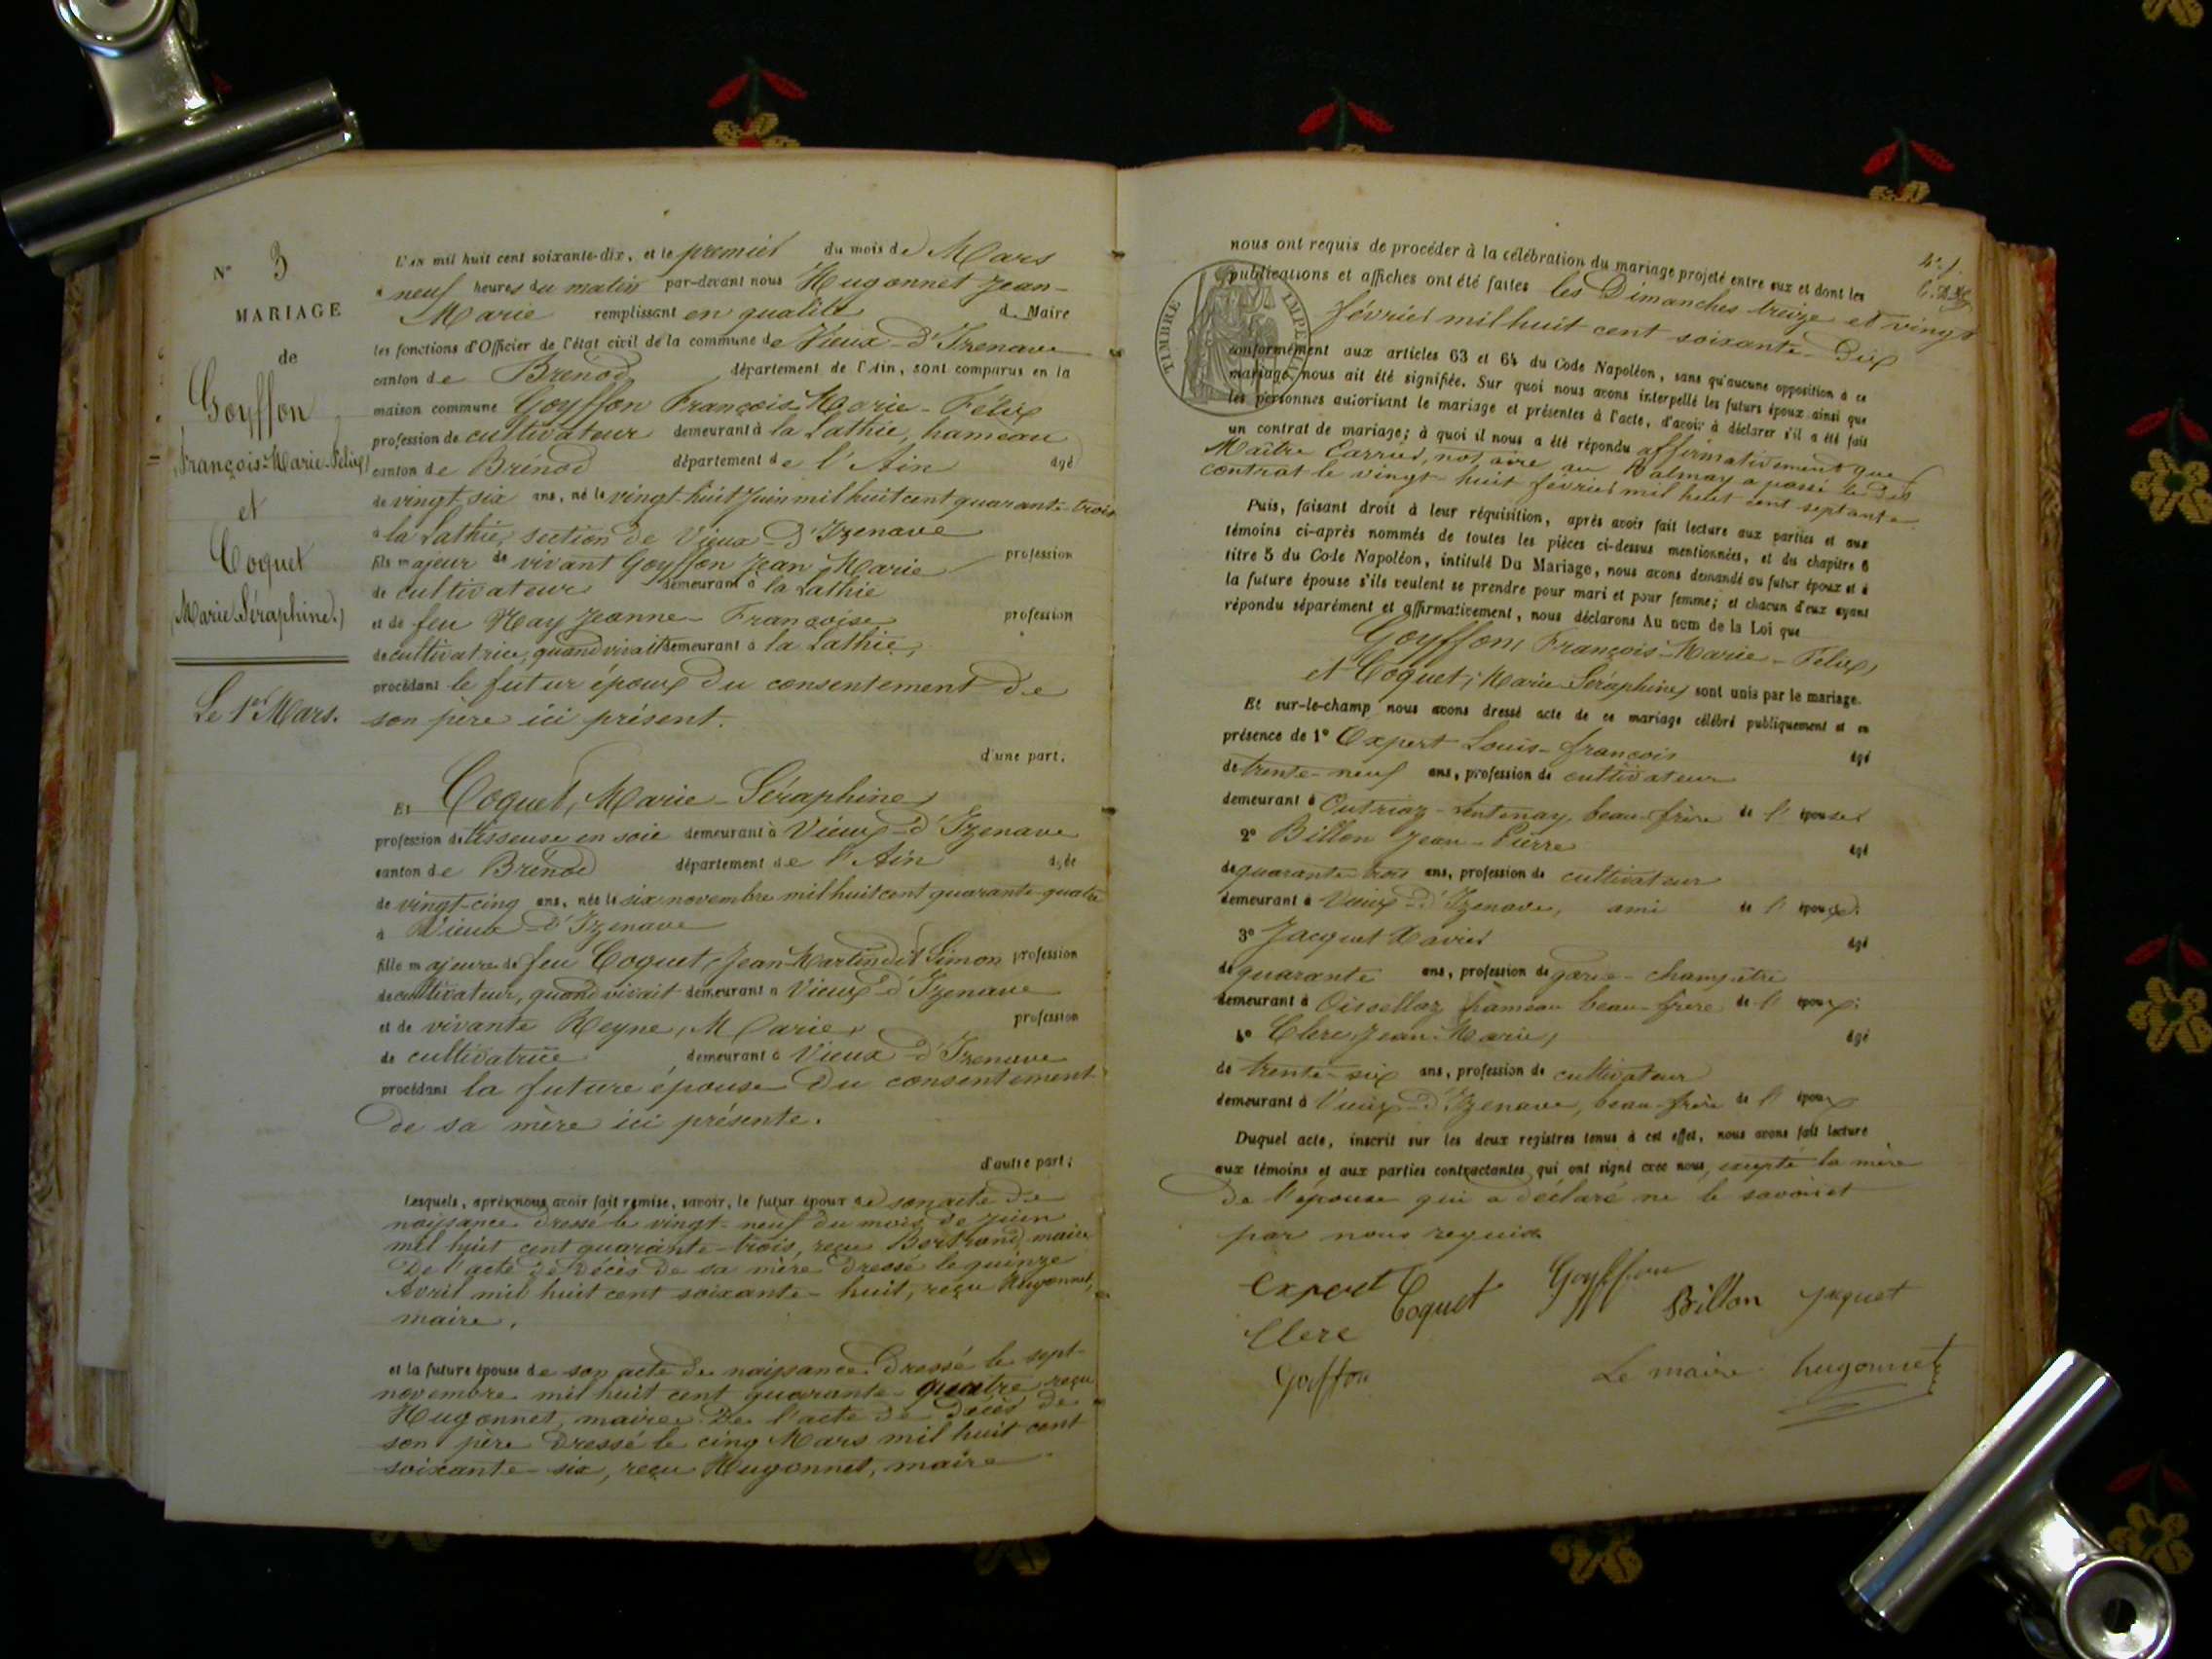 N° 3
MARIAGE
de
Goyffon
(François-Marie-Félix)
et
Coquet
(Marie-Séraphine.)
Le 1er Mars.
L'AN mil huit cent soixante-dix, et le premier du mois de Mars
à neuf heures du matin par-devant nous Hugonnet Jean-
Marie remplissant en qualité de Maire
les fonctions d'Officier de l'état civil de la commune de Vieux-d'Izenave
canton de Brénod département de l'Ain, sont comparus en la
maison commune Goyffon François-Marie-Félix
profession de cultivateur demeurant à la Lathie, hameau
canton de Brénod département de l'Ain âgé
de vingt six ans, né le vingt-huit Juin mil huit cent quarante-trois
à la Lathie, section de Vieux-d'Izenave
fils majeur de vivant Goyffon Jean Marie profession
de cultivateur demeurant à la Lathie
et de feu Hay Jeanne-Françoise profession
de cultivatrice, quand vivait demeurant à la Lathie,
procédant le futur époux du consentement de
son père ici présent.
d'une part.
Et Coquet, Marie-Séraphine,
profession de tisseuse en soie demeurant à Vieux-d'Izenave
canton de Brénod département de l'Ain âgée
de vingt-cinq ans, née le six novembre mil huit cent quarante-quatre
à Vieux-d'Izenave
fille majeure de feu Coquet, Jean-Martin dit Simon profession
de cultivateur, quand vivait demeurant à Vieux-d'Izenave
et de vivante Reyne, Marie, profession
de cultivatrice, demeurant à Vieux-d'Izenave
procédant la future épouse du consentement
de sa mère ici présente.
d'autre part;
Lesquels, après nous avoir fait remise, savoir, le futur époux de son acte de
naissance dressé le vingt-neuf du mois de juin
mil huit cent quarante-trois, reçu Bertrand, maire
De l'acte de décès de sa mère dressé le quinze
Avril mil huit cent soixante-huit, reçu Hugonnet,
maire.
et la future épouse de son acte de naissance dressé le sept
novembre mil huit cent quarante-quatre, reçu
Hugonnet, maire De l'acte de décès de
son père dressé le cinq Mars mil huit cent
soixante-six, reçu Hugonnet, maire
TIMBRE IMPÉRIAL
nous ont requis de procéder à la célébration du mariage projeté entre eux et dont les
publications et affiches ont été faites les Dimanches treize et vingt
février mil huit cent soixante-dix
conformément aux articles 63 et 64 du Code Napoléon, sans qu'aucune opposition à ce
mariage nous ait été signifiée. Sur quoi nous avons interpellé les futurs époux ainsi que
les personnes autorisant le mariage et présentes à l'acte, d'avoir à déclarer s'il a été fait
un contrat de mariage; à quoi il nous a été répondu affirmativement que
Maître Carrier, notaire au Balmay a passé le dit
contrat le vingt-huit février mil huit cent septante
Puis, faisant droit à leur réquisition, après avoir fait lecture aux parties et aux
témoins ci-après nommés de toutes les pièces ci-dessus mentionnées, et du chapitre 6
titre 5 du Code Napoléon, intitulé Du Mariage, nous avons demandé au futur époux et à
la future épouse s'ils veulent se prendre pour mari et pour femme; et chacun d'eux ayant
répondu séparément et affirmativement, nous déclarons Au nom de la Loi que
Goyffon, François-Marie-Félix,
et Coquet, Marie Séraphine, sont unis par le mariage.
Et sur-le-champ nous avons dressé acte de ce mariage célébré publiquement et en
présence de 1° Expert Louis-françois âgé
de trente-neuf ans, profession de cultivateur
demeurant à Outriaz-Lentenay, beau-frère de l'épouse
2° Billon Jean-Pierre âgé
de quarante-trois ans, profession de cultivateur
demeurant à Vieux-d'Izenave, ami de l'époux.
3° Jacquet Xavier âgé
de quarante ans, profession de garde-champêtre
demeurant à Oisellaz hameau beau-frère de l'époux.
4° Clerc, Jean-Marie, âgé
de trente-six ans, profession de cultivateur
demeurant à Vieux-d'Izenave, beau-frère de l'époux
Duquel acte, inscrit sur les deux registres tenus à cet effet, nous avons fait lecture
aux témoins et aux parties contractantes qui ont signé avec nous, excepté la mère
de l'épouse qui a déclaré ne le savoir et
par nous requise
Expert Coquet Goyffon Billon Jaquet
Clerc
Goyffon Le maire hugonnet